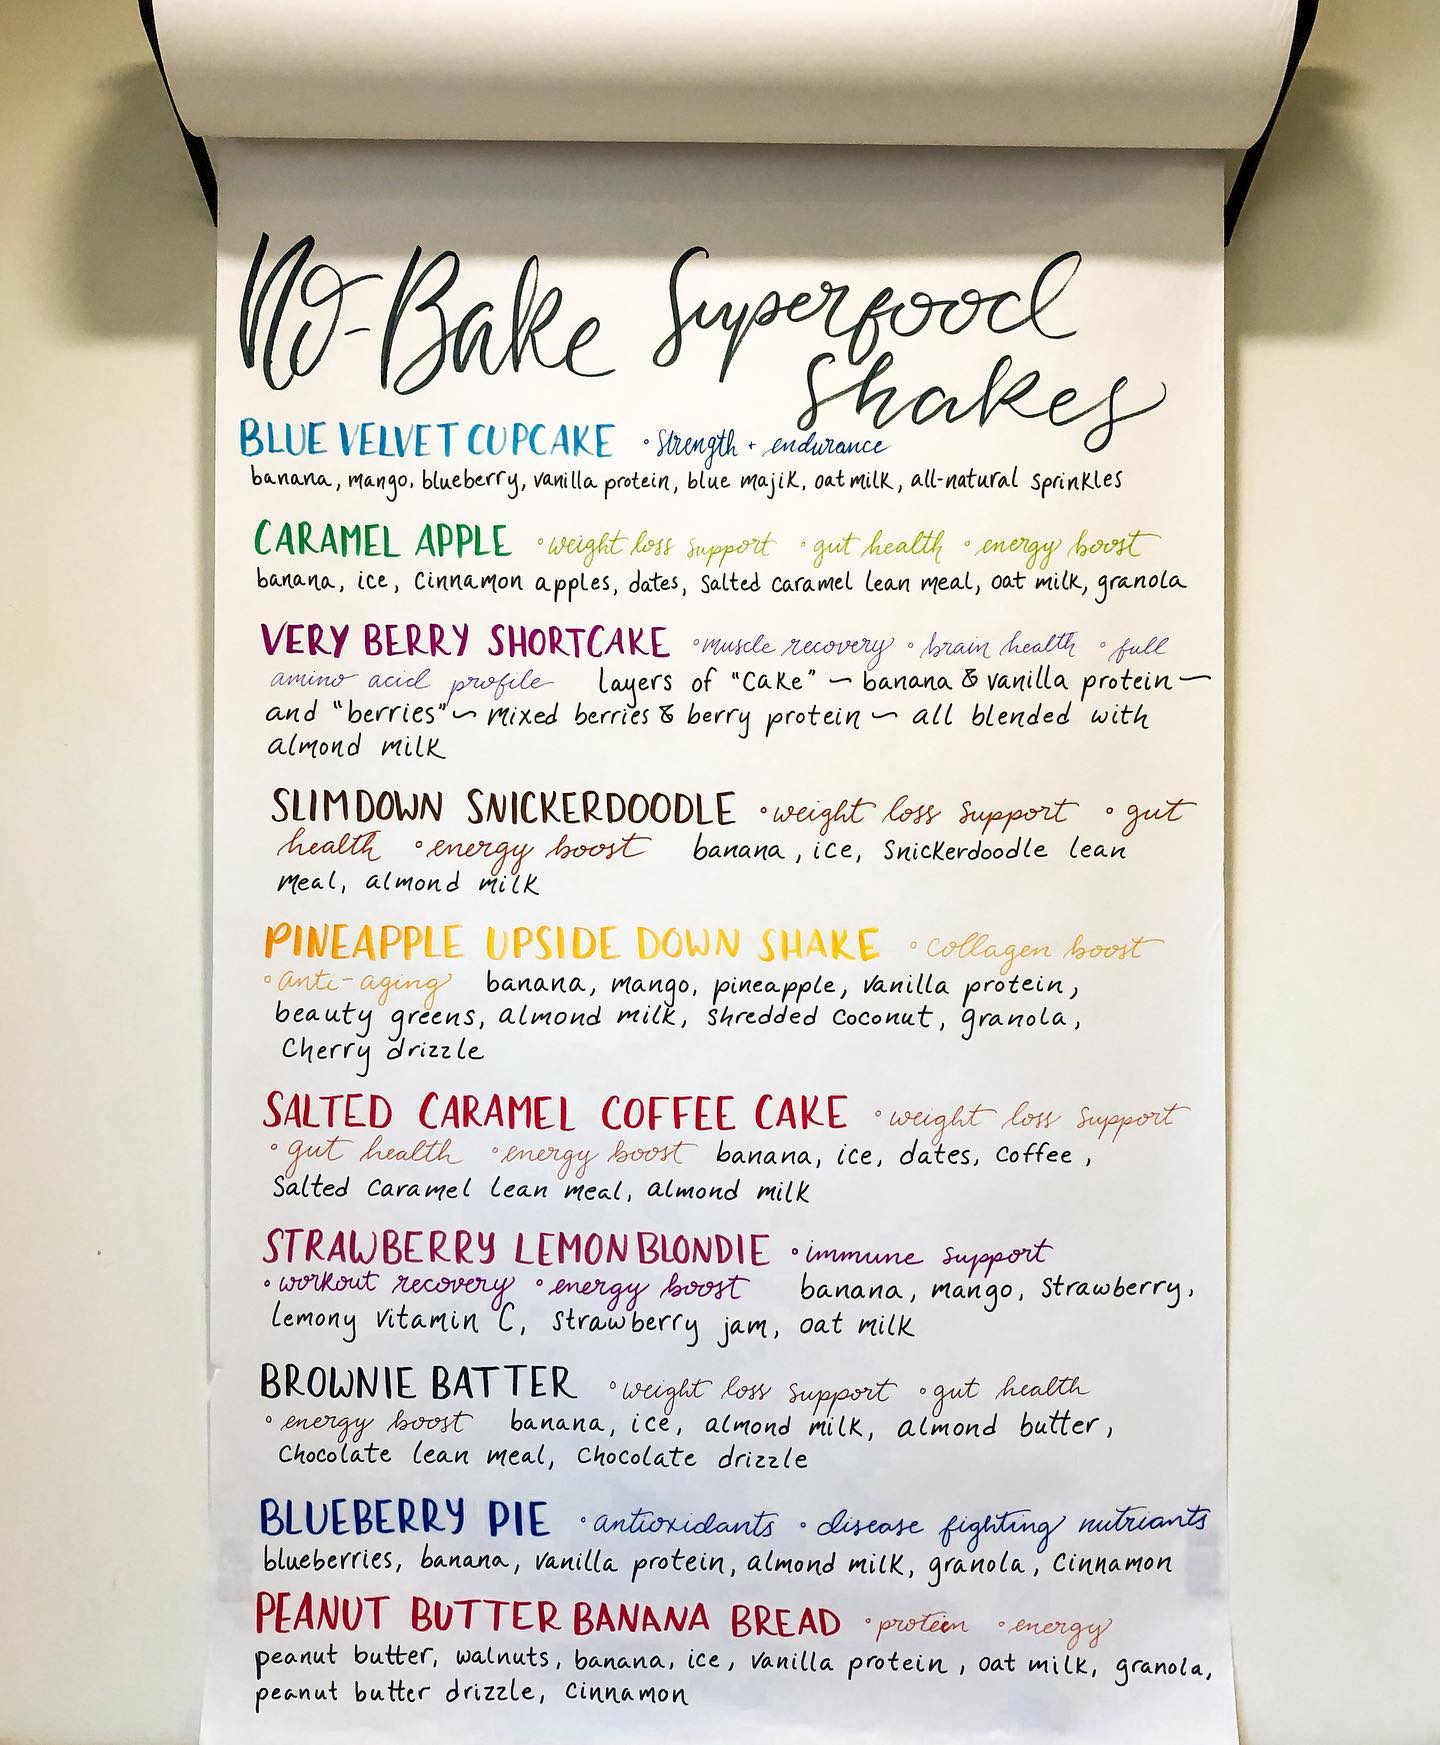 No-Bake Superfood
Shakes
BLUE VELVET CUPCAKE • strength + endurance
banana, mango, blueberry, vanilla protein, blue majik, oatmilk, all-natural sprinkles
CARAMEL APPLE • weight loss support • gut health • energy boost
banana, ice, cinnamon apples, dates, salted caramel lean meal, oat milk, granola
VERY BERRY SHORTCAKE • muscle recovery • brain health • full
amino acid profile layers of "cake" ~ banana & vanilla protein ~
and "berries" ~ mixed berries & berry protein ~ all blended with
almond milk
SLIMDOWN SNICKERDOODLE • weight loss support • gut
health • energy boost banana, ice, snickerdoodle lean
meal, almond milk
PINEAPPLE UPSIDE DOWN SHAKE • collagen boost
• anti-aging banana, mango, pineapple, vanilla protein,
beauty greens, almond milk, shredded coconut, granola,
cherry drizzle
SALTED CARAMEL COFFEE CAKE • weight loss support
• gut health • energy boost banana, ice, dates, coffee,
salted caramel lean meal, almond milk
STRAWBERRY LEMON BLONDIE • immune support
• workout recovery • energy boost banana, mango, strawberry,
lemony vitamin C, strawberry jam, oat milk
BROWNIE BATTER • weight loss support • gut health
• energy boost banana, ice, almond milk, almond butter,
chocolate lean meal, chocolate drizzle
BLUEBERRY PIE • antioxidants • disease fighting nutrients
blueberries, banana, vanilla protein, almond milk, granola, cinnamon
PEANUT BUTTER BANANA BREAD • protein • energy
peanut butter, walnuts, banana, ice, vanilla protein, oat milk, granola,
peanut butter drizzle, cinnamon